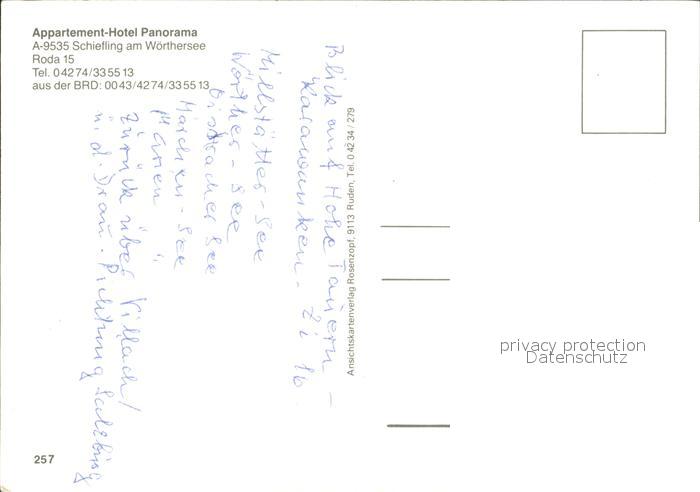 Appartement-Hotel Panorama
A-9535 Schiefling am Wörthersee
Roda 15
Tel. 0 42 74/33 55 13
aus der BRD: 00 43/42 74/33 55 13
Blick auf Hohe Tauern -
Karawanken - Zi 16.
Millstätter-See
Wörther-See
Ossiacher See
"
zurück über Villach/
n. d. Drau. Richtung Salzburg
Ansichtskartenverlag Rosenzopf, 9113 Ruden, Tel. 0 42 34 / 279
privacy protection
Datenschutz
257